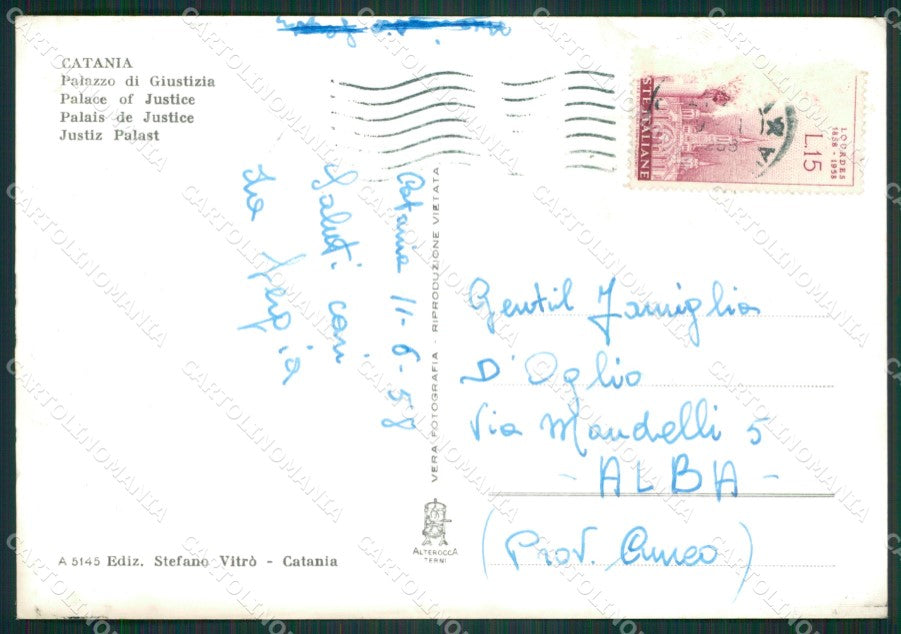 CATANIA
Palazzo di Giustizia
Palace of Justice
Palais de Justice
Justiz Palast
Catania 11-6-58
Saluti cari
POSTE ITALIANE
L.15
LOURDES
1858-1958
VERA FOTOGRAFIA - RIPRODUZIONE VIETATA
Gentil Famiglia
D'Oglio
Via Mandelli 5
- ALBA -
(Prov. Cuneo)
ALTEROCCA
TERNI
A 5145 Ediz. Stefano Vitrò - Catania
CARTOLINOMANIA